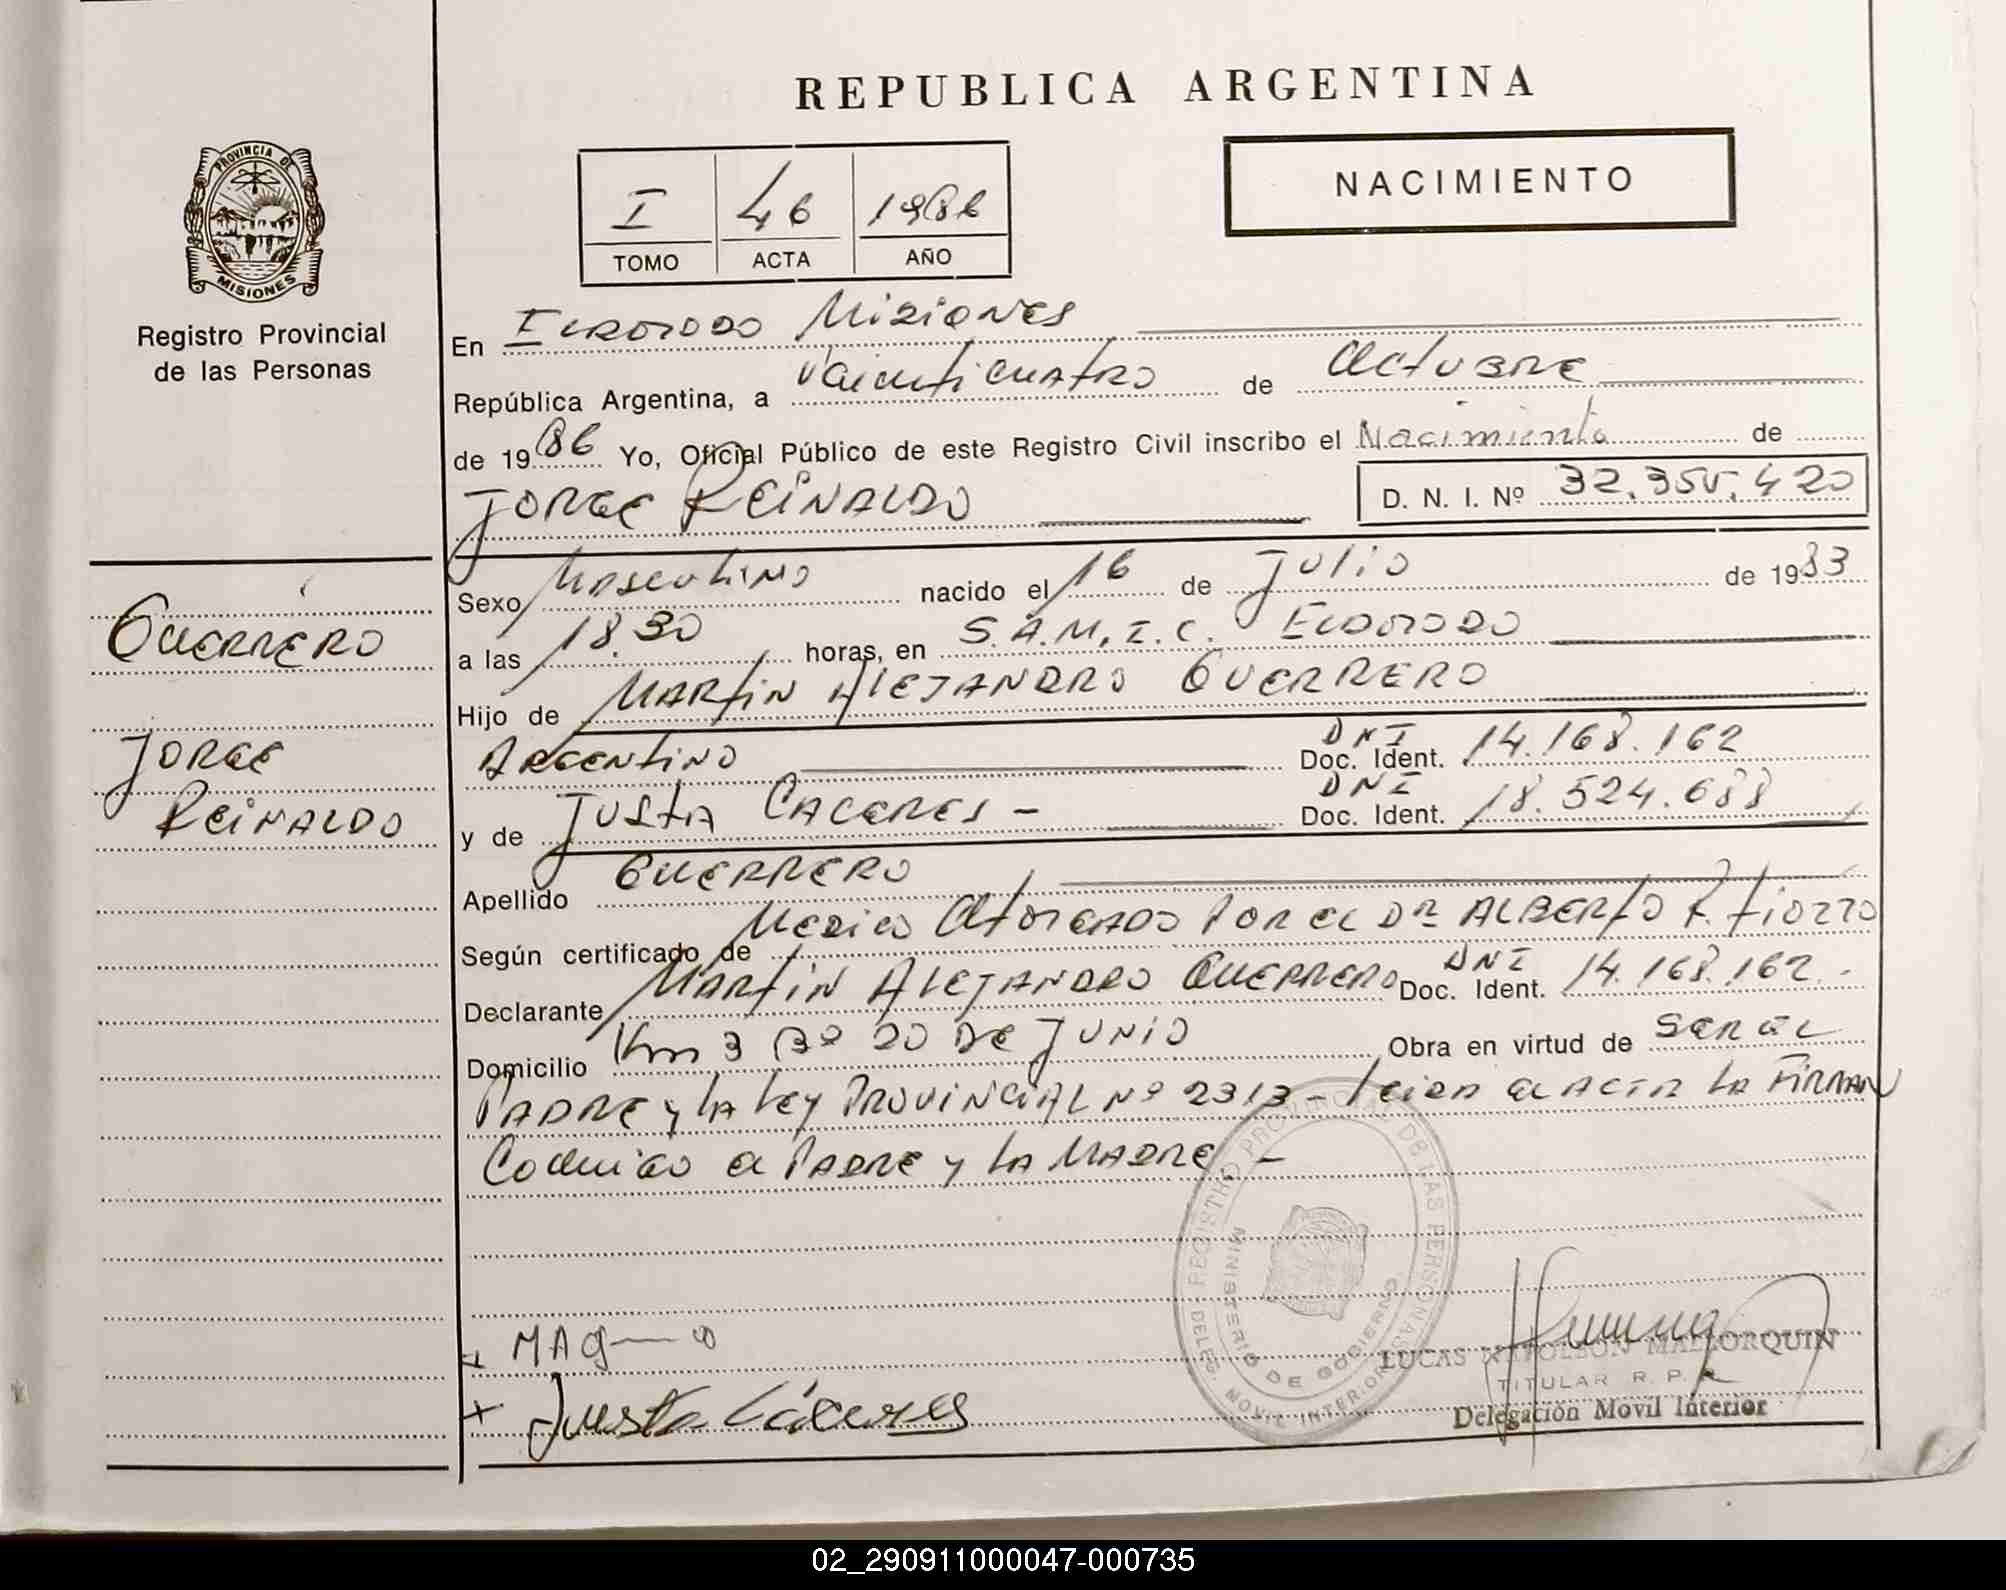 REPUBLICA ARGENTINA
NACIMIENTO
I 46 1986
TOMO ACTA AÑO
PROVINCIA DE
MISIONES
Registro Provincial
de las Personas
En Eldorado Misiones
República Argentina, a Vainticuatro de Octubre
de 1986 Yo, Oficial Público de este Registro Civil inscribo el Nacimiento de
JORGE REINALDO D. N. I. Nº 32.355.420
Sexo Masculino nacido el 16 de Julio de 1983
a las 18.30 horas, en S.A.M.I.C. Eldorado
Hijo de MARTIN ALEJANDRO GUERRERO
Argentino DNI Doc. Ident. 14.168.162
y de JUSTA CACERES - DNI Doc. Ident. 18.524.688
Apellido GUERRERO
Según certificado de Medico Otorgado Por el Dr ALBERTO R. Fiozzo
Declarante MARTIN ALEJANDRO GUERRERO DNI Doc. Ident. 14.168.162.
Domicilio Km 3 Bº 20 De Junio Obra en virtud de Ser el
PADRE y LA Ley PROVINCIAL Nº 2313 - Leida el Acta LA FIRMAN
Conmigo el PADRE y LA MADRE -
GUERRERO
JORGE
REINALDO
REGISTRO PROVINCIAL DE LAS PERSONAS
MINISTERIO DE GOBIERNO
DELEG. MOVIL INTERIOR
MAG
x Justa Cáceres
LUCAS NAPOLEON MALLORQUIN
TITULAR R. P.
Delegación Movil Interior
02_290911000047-000735